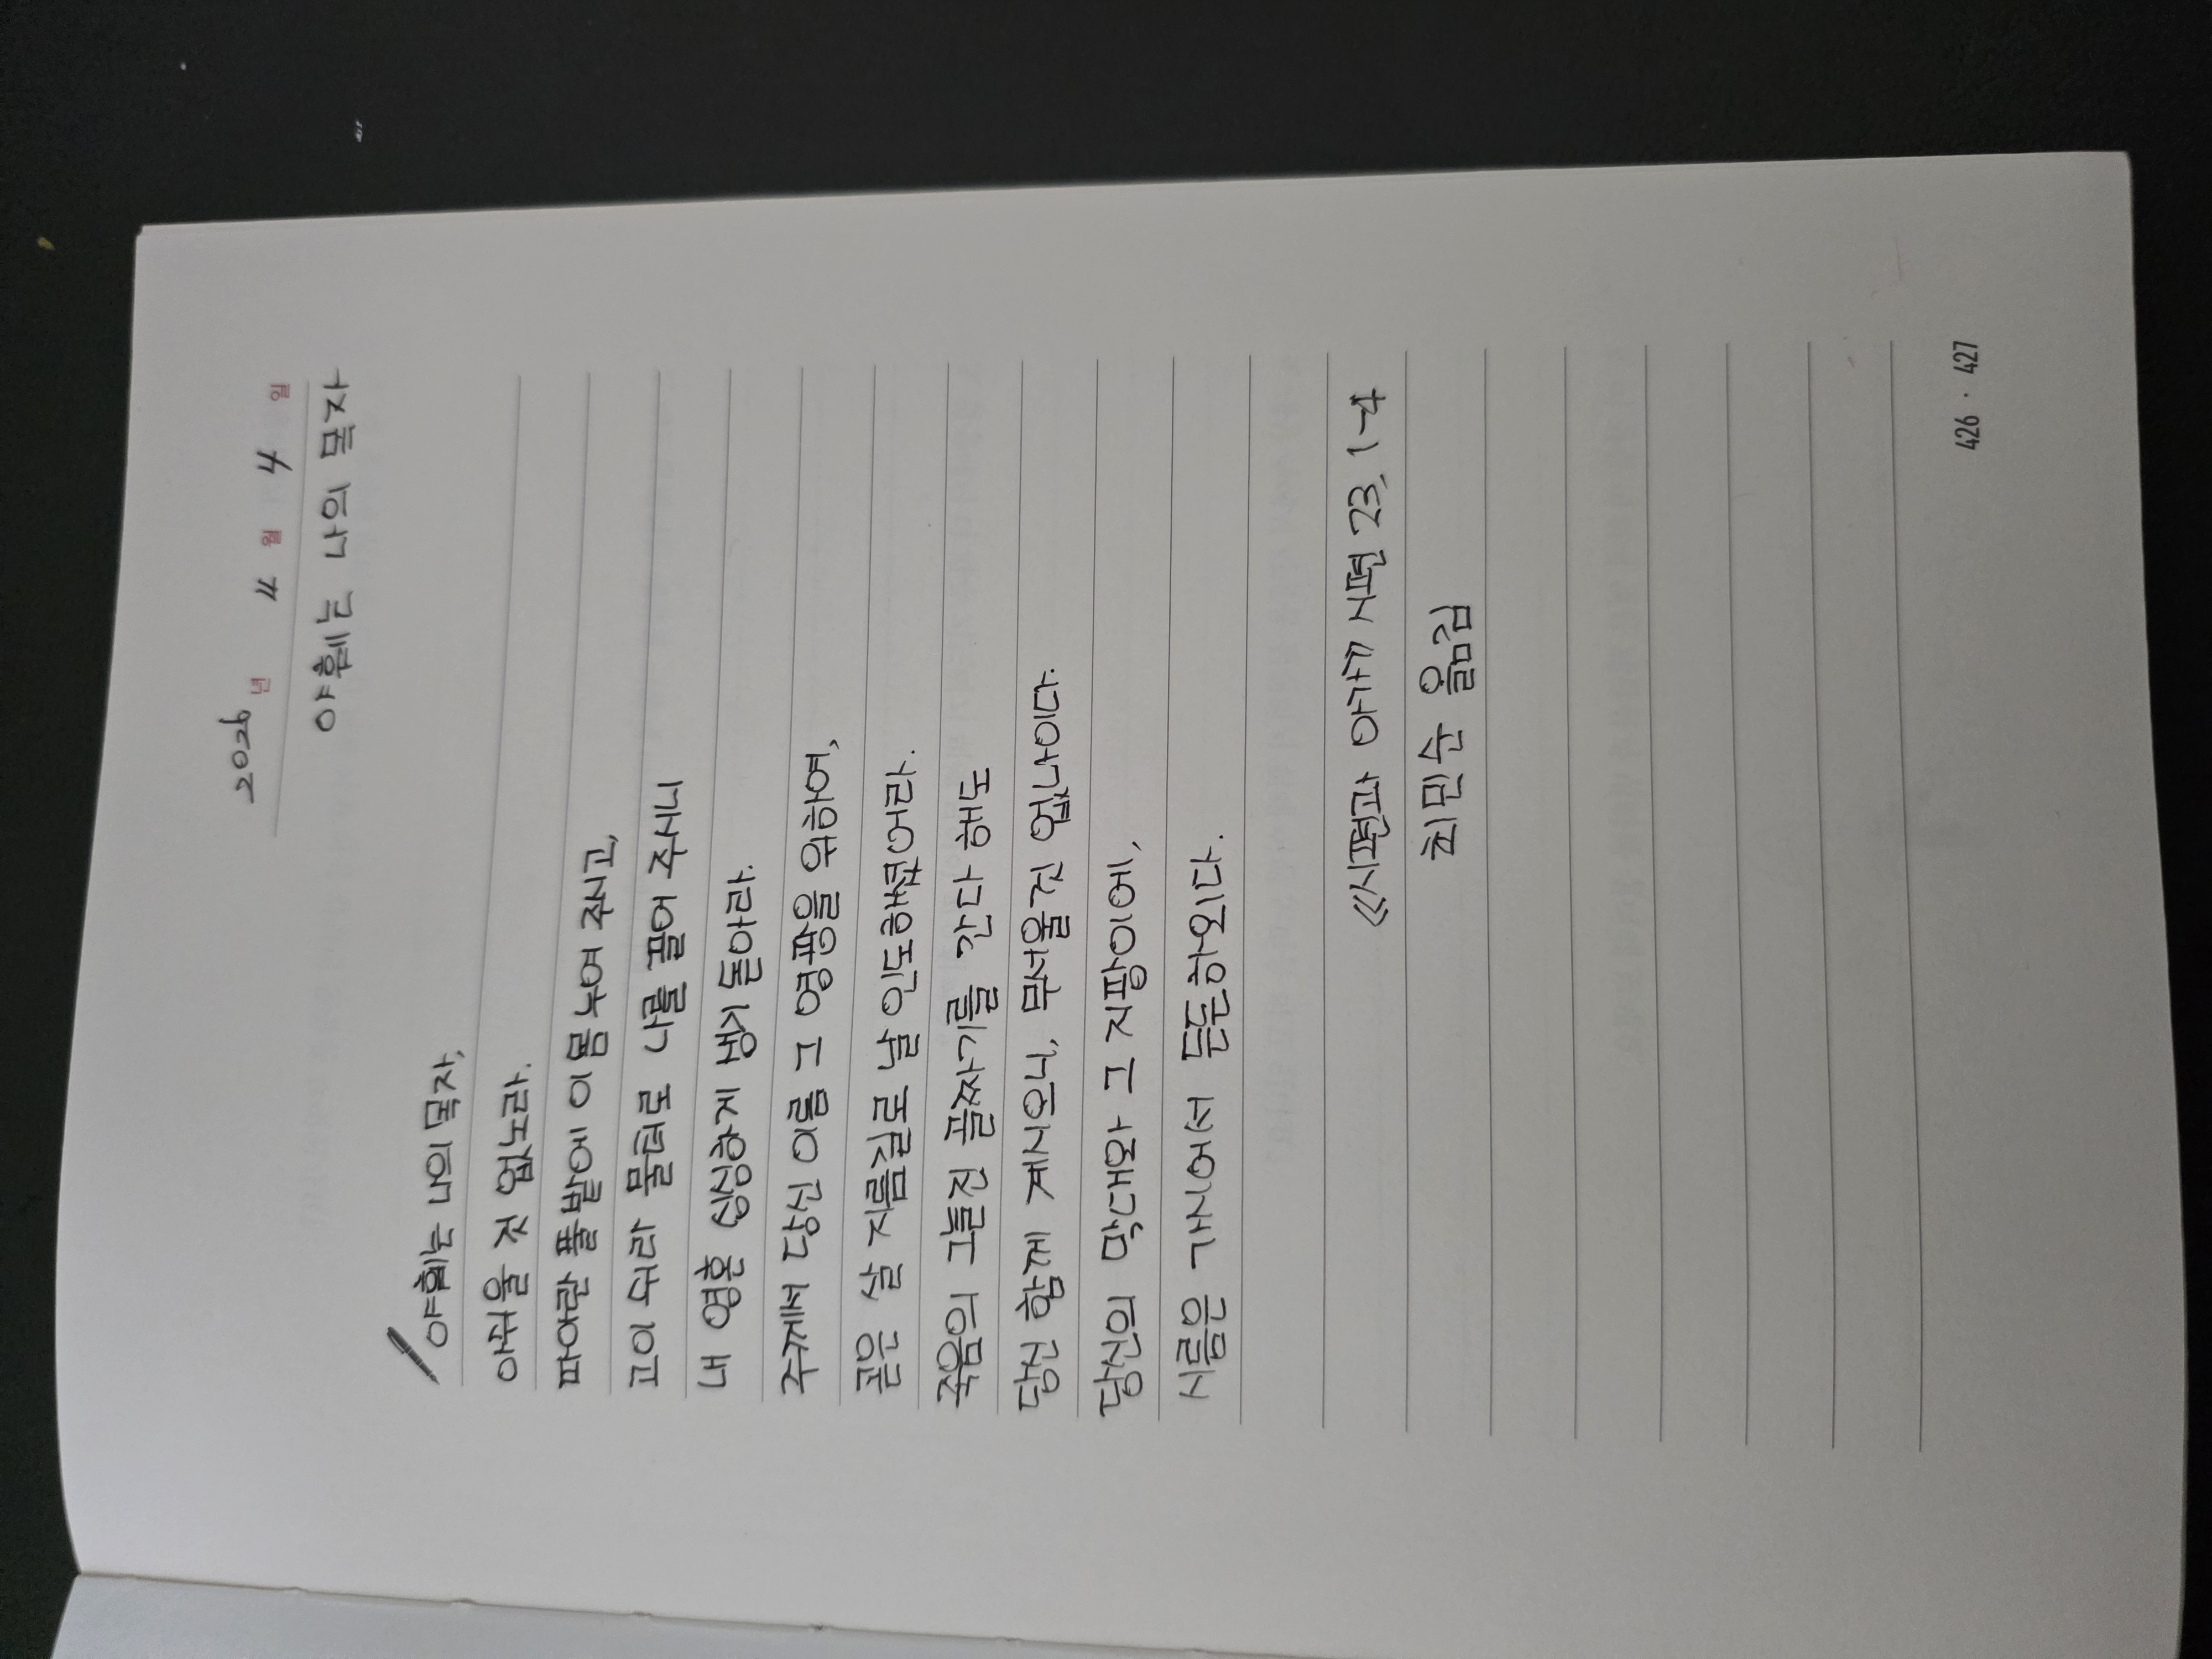 2025 년 11 월 4 일
야훼는 나의 목자
야훼는 나의 목자,
아쉬울 것 없노라.
파아란 풀밭에 이 몸 누여 주시고,
고이 쉬라 물터로 나를 끌어 주시니
내 영혼 싱싱하게 생기 돌아라.
주께서 당신 이름 그 영광을 위하여,
곧은 살 지름길로 날 인도하셨어라.
죽음의 그늘진 골짜기를 간다 해도
당신 함께 계시오니, 무서울 것 없나이다.
당신의 막대와 그 지팡이에,
시름은 가시어서 든든하외다.
《시편과 아가》 시편 23, 1-4
최민순 옮김
426 · 427